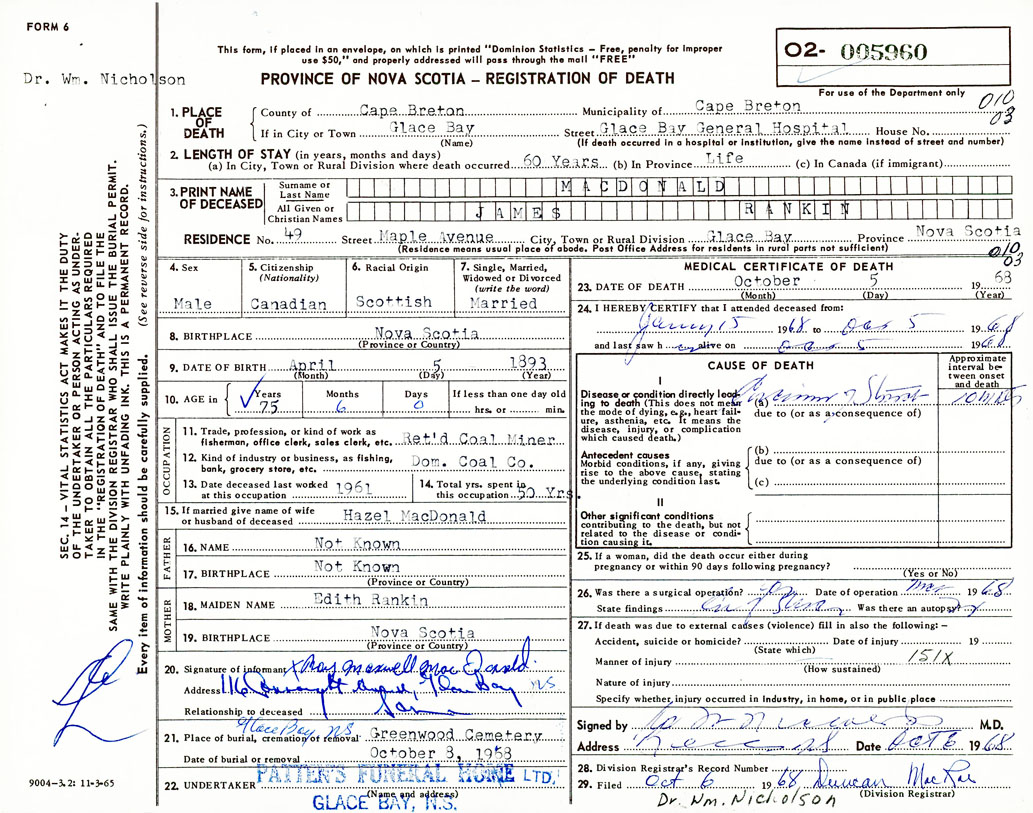 FORM 6
This form, if placed in an envelope, on which is printed "Dominion Statistics — Free, penalty for improper
use $50," and properly addressed will pass through the mail "FREE"
O2- 005960
For use of the Department only
Dr. Wm. Nicholson
PROVINCE OF NOVA SCOTIA — REGISTRATION OF DEATH
010
03
1. PLACE OF DEATH
County of Cape Breton Municipality of Cape Breton
If in City or Town Glace Bay Street Glace Bay General Hospital House No.
(Name) (If death occurred in a hospital or institution, give the name instead of street and number)
2. LENGTH OF STAY (in years, months and days)
(a) In City, Town or Rural Division where death occurred 60 Years (b) In Province Life (c) In Canada (if immigrant)
3. PRINT NAME OF DECEASED
Surname or Last Name MACDONALD
All Given or Christian Names JAMES RANKIN
RESIDENCE No. 49 Street Maple Avenue City, Town or Rural Division Glace Bay Province Nova Scotia
(Residence means usual place of abode. Post Office Address for residents in rural parts not sufficient)
010
03
4. Sex
Male
5. Citizenship
(Nationality)
Canadian
6. Racial Origin
Scottish
7. Single, Married,
Widowed or Divorced
(write the word)
Married
8. BIRTHPLACE Nova Scotia
(Province or Country)
9. DATE OF BIRTH April 5 1893
(Month) (Day) (Year)
10. AGE in Years Months Days If less than one day old
75 6 0 hrs. or min.
OCCUPATION
11. Trade, profession, or kind of work as
fisherman, office clerk, sales clerk, etc. Ret'd Coal Miner
12. Kind of industry or business, as fishing,
bank, grocery store, etc. Dom. Coal Co.
13. Date deceased last worked
at this occupation 1961
14. Total yrs. spent in
this occupation 50 Yrs.
15. If married give name of wife
or husband of deceased Hazel MacDonald
FATHER
16. NAME Not Known
17. BIRTHPLACE Not Known
(Province or Country)
MOTHER
18. MAIDEN NAME Edith Rankin
19. BIRTHPLACE Nova Scotia
(Province or Country)
20. Signature of informant X Roy Maxwell MacDonald
Address 116 Glace Bay NS
Relationship to deceased
Glace Bay NS
21. Place of burial, cremation or removal Greenwood Cemetery
Date of burial or removal October 8, 1968
22. UNDERTAKER PATTEN'S FUNERAL HOME LTD.
(Name and address)
GLACE BAY, N.S.
MEDICAL CERTIFICATE OF DEATH
23. DATE OF DEATH October 5 1968
(Month) (Day) (Year)
24. I HEREBY CERTIFY that I attended deceased from:
15 1968 to Oct 5 1968
and last saw h alive on Oct 5 1968
CAUSE OF DEATH
Approximate
interval be-
tween onset
and death
I
Disease or condition directly lead-
ing to death (This does not mean
the mode of dying, e.g., heart fail-
ure, asthenia, etc. It means the
disease, injury, or complication
which caused death.)
(a) Carcinoma of Stomach 10 mths
due to (or as a consequence of)
Antecedent causes
Morbid conditions, if any, giving
rise to the above cause, stating
the underlying condition last.
(b)
due to (or as a consequence of)
(c)
II
Other significant conditions
contributing to the death, but not
related to the disease or condi-
tion causing it.
25. If a woman, did the death occur either during
pregnancy or within 90 days following pregnancy?
(Yes or No)
26. Was there a surgical operation? Date of operation Mar 1968
State findings Was there an autopsy?
27. If death was due to external causes (violence) fill in also the following: —
Accident, suicide or homicide? Date of injury 19
(State which)
Manner of injury 151X
(How sustained)
Nature of injury
Specify whether injury occurred in Industry, in home, or in public place
Signed by M.D.
Address Date Oct 6 1968
28. Division Registrar's Record Number
29. Filed Oct 6 1968 Duncan MacRae
(Division Registrar)
Dr. Wm. Nicholson
SEC. 14 — VITAL STATISTICS ACT MAKES IT THE DUTY
OF THE UNDERTAKER OR PERSON ACTING AS UNDER-
TAKER TO OBTAIN ALL THE PARTICULARS REQUIRED
IN THE "REGISTRATION OF DEATH" AND TO FILE THE
SAME WITH THE DIVISION REGISTRAR WHO SHALL ISSUE THE BURIAL PERMIT.
WRITE PLAINLY WITH UNFADING INK. THIS IS A PERMANENT RECORD.
Every item of information should be carefully supplied. (See reverse side for instructions.)
9004-3.2: 11-3-65